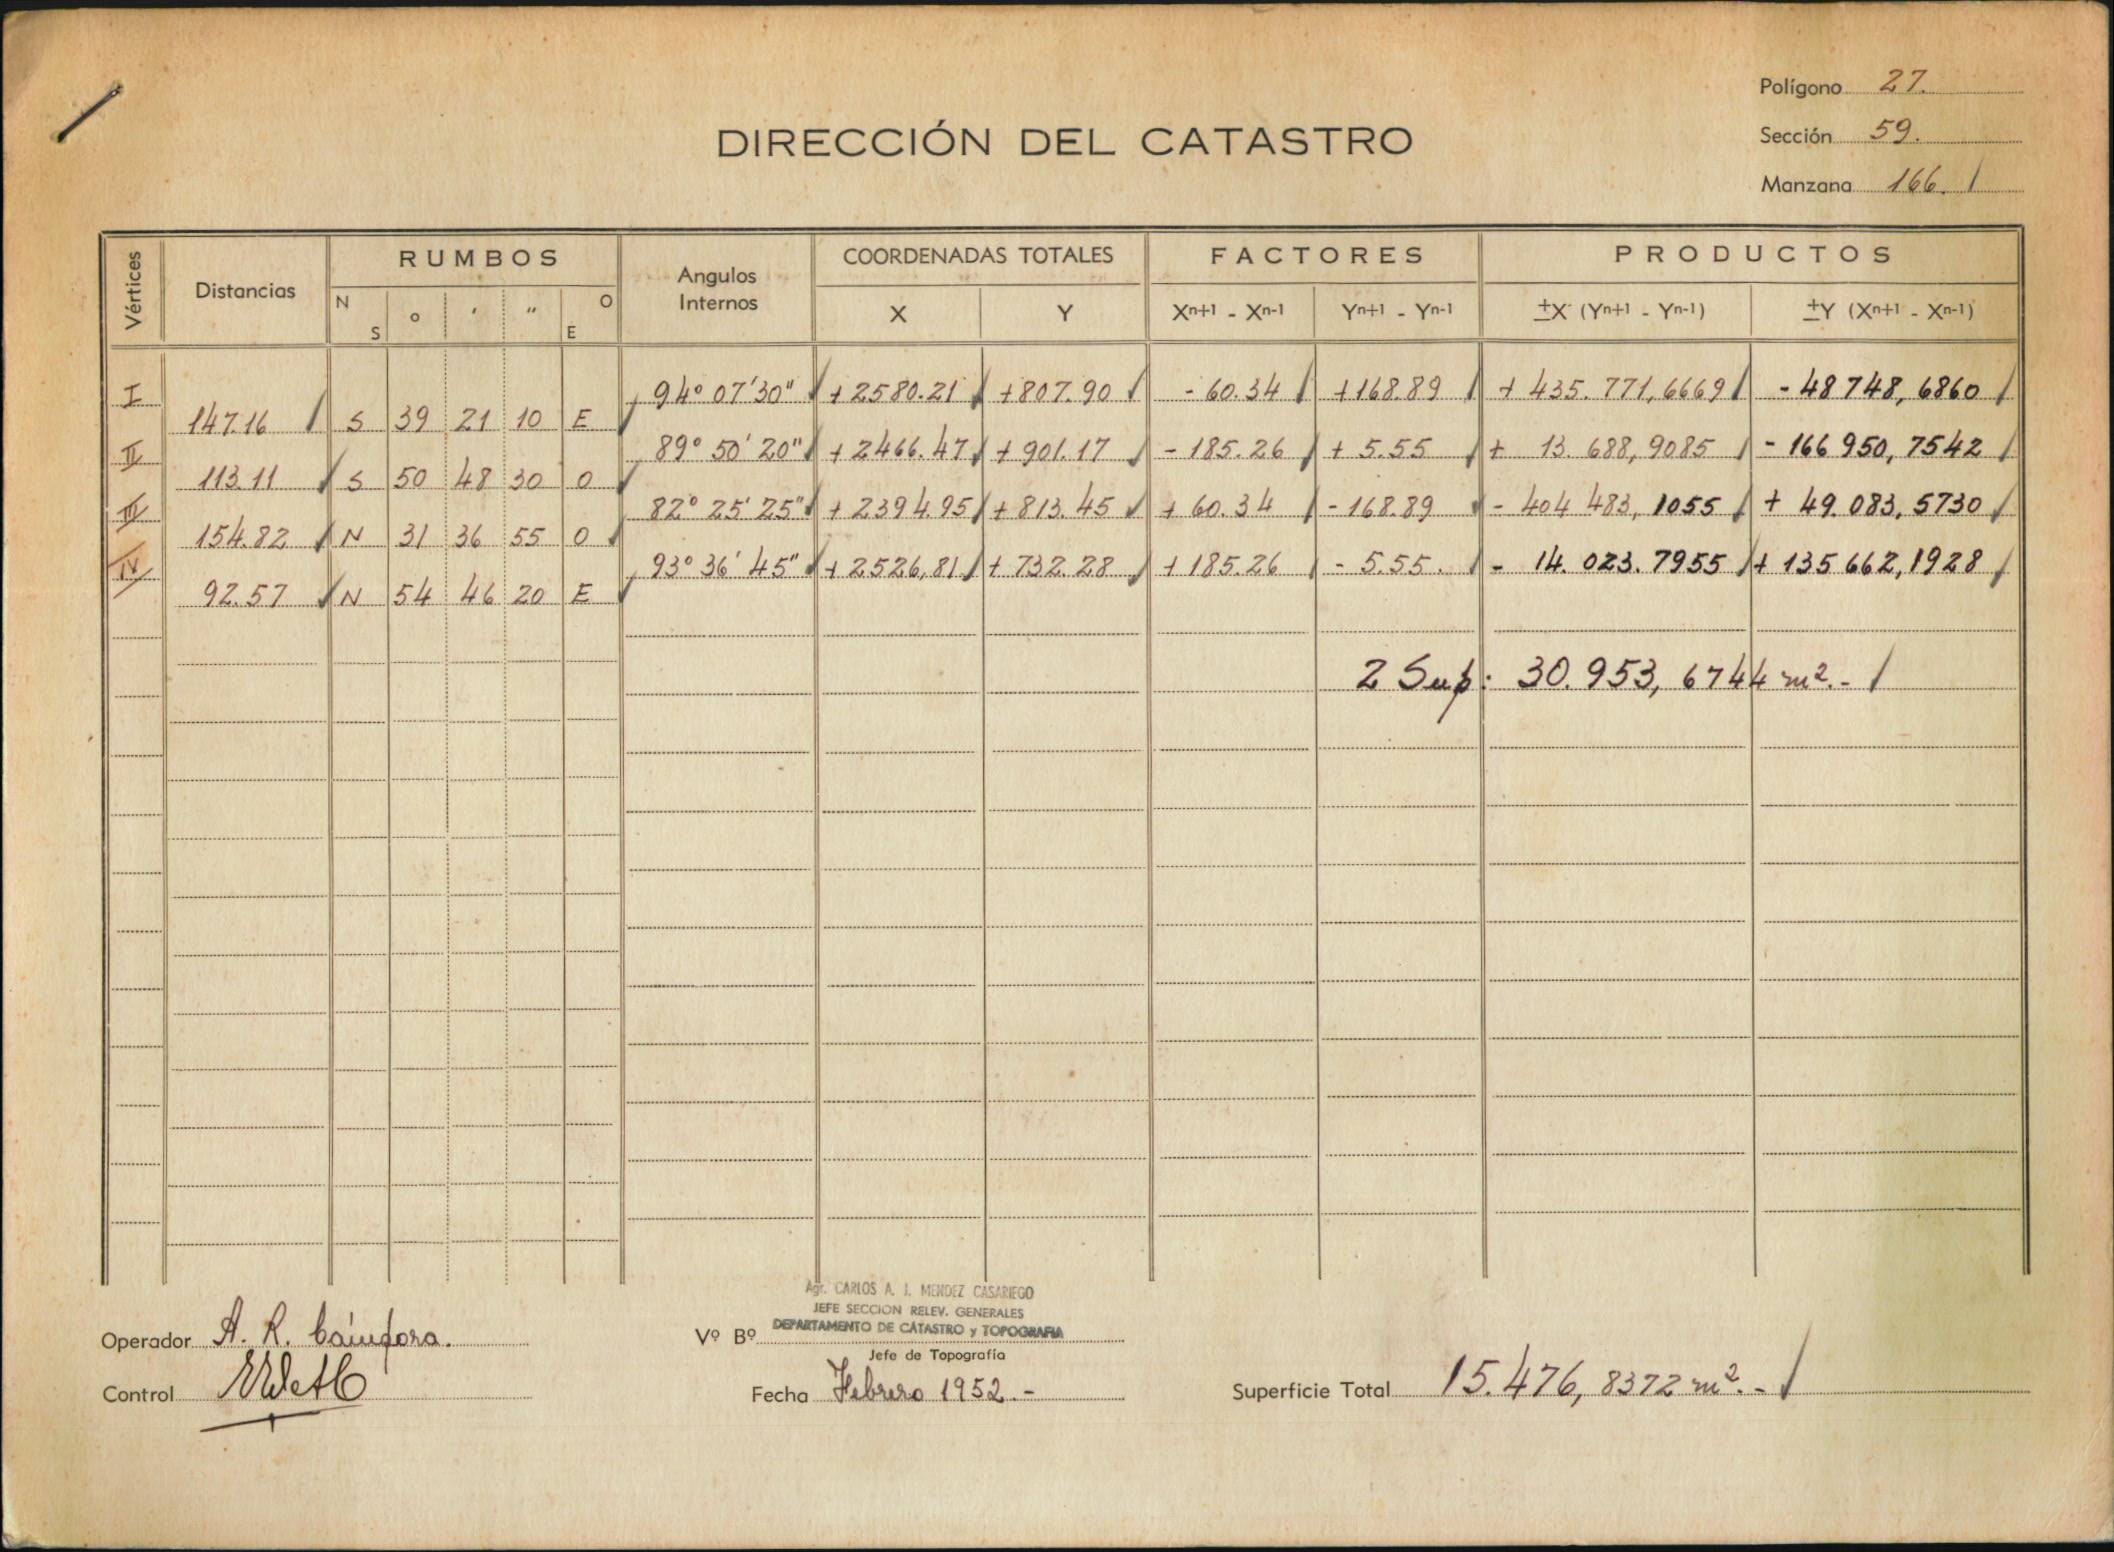 Polígono 27.
DIRECCIÓN DEL CATASTRO
Sección 59.
Manzana 166. /
Vértices
Distancias
RUMBOS
N S
o
'
"
O E
Angulos Internos
COORDENADAS TOTALES
X
Y
FACTORES
Xn+1 - Xn-1
Yn+1 - Yn-1
PRODUCTOS
±X (Yn+1 - Yn-1)
±Y (Xn+1 - Xn-1)
I 94° 07' 30" +2580.21 +807.90 - 60.34 +168.89 + 435.771,6669 - 48748,6860
147.16 S 39 21 10 E
II 89° 50' 20" +2466.47 +901.17 - 185.26 + 5.55 + 13.688,9085 - 166950,7542
113.11 S 50 48 30 O
III 82° 25' 25" +2394.95 +813.45 + 60.34 - 168.89 - 404483,1055 + 49.083,5730
154.82 N 31 36 55 O
IV 93° 36' 45" +2526,81 +732.28 +185.26 - 5.55. - 14.023.7955 + 135662,1928
92.57 N 54 46 20 E
2 Sup: 30.953,6744 m². - /
Agr. CARLOS A. J. MENDEZ CASARIEGO
JEFE SECCION RELEV. GENERALES
DEPARTAMENTO DE CATASTRO y TOPOGRAFIA
Operador A. R.
Vº Bº
Jefe de Topografía
Control
Fecha Febrero 1952. -
Superficie Total 15.476,8372 m². - /